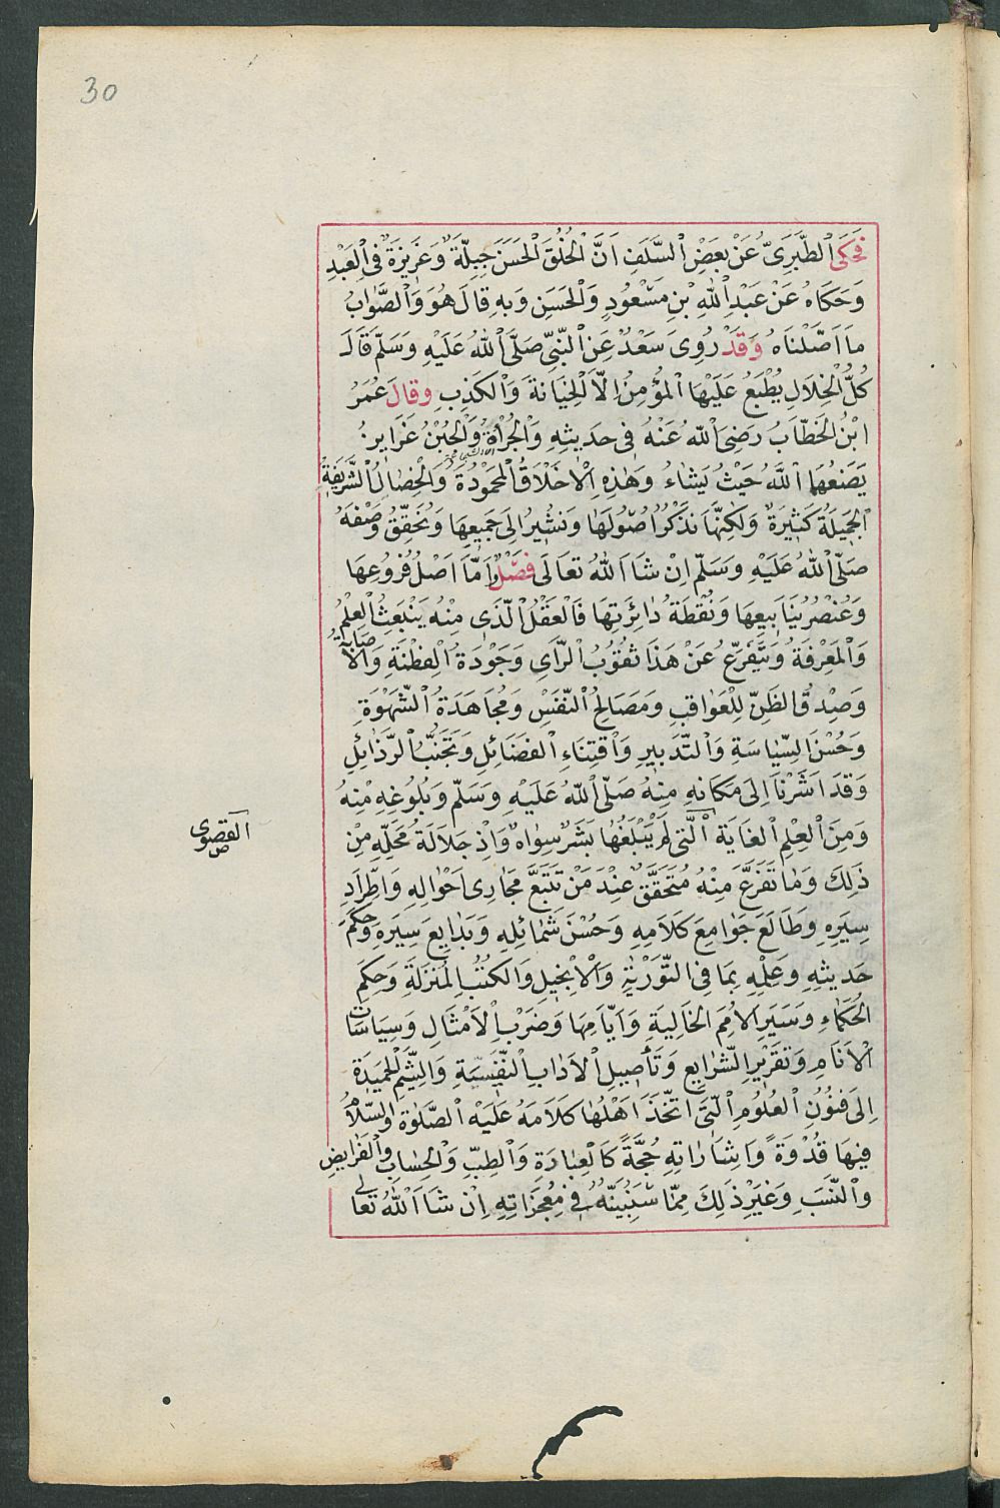 30
فَحَكَى الطَّبَرِىُّ عَنْ بَعْضِ السَّلَفِ اَنَّ الْخُلُقَ الْحَسَنَ جِبِلَّةٌ وَغَرِيزَةٌ فِى الْعَبْدِ
وَحَكَاهُ عَنْ عَبْدِ اللهِ بْنِ مَسْعُودٍ وَالْحَسَنِ وَبِهِ قَالَ هُوَ وَالصَّوَابُ
مَا اَصَّلْنَاهُ وَقَدْ رُوِىَ سَعْدٌ عَنِ النَّبِىِّ صَلَّى اللهُ عَلَيْهِ وَسَلَّمَ قَالَ
كُلُّ الْخِلَالِ يُطْبَعُ عَلَيْهَا الْمُؤْمِنُ اِلَّا الْخِيَانَةَ وَالْكَذِبِ وَقَالَ عُمَرُ
ابْنُ الْخَطَّابُ رَضِىَ اللهُ عَنْهُ فِى حَدِيثِهِ وَالْجُرْأَةُ وَالْجُبْنُ غَرَايِزُ
يَضَعُهَا اللَّهُ حَيْثُ يَشَاءُ وَهٰذِهِ الْاَخْلَاقُ الْمَحْمُودَةُ وَالْخِصَالُ الشَّرِيفَةُ
الْجَمِيلَةُ كَثِيرَةٌ وَلَكِنَّهَا نَذْكُرُ اُصُولَهَا وَنُشِيرُ اِلَى جَمِيعِهَا وَنُحَقِّقُ وَصْفَهُ
صَلَّى اللهُ عَلَيْهِ وَسَلَّمَ اِنْ شَا اللهُ تَعَالَى فَصْلٌ وَاَمَّا اَصْلُ فُرُوعِهَا
وَعُنْصُرُ يَنَابِيعِهَا وَنُقْطَةُ دَائِرَتِهَا فَالْعَقْلُ الَّذِى مِنْهُ يَنْبَعِثُ الْعِلْمُ
وَالْمَعْرِفَةُ وَيَتَفَرَّعُ عَنْ هَذَا ثُقُوبُ الرَّاىِ وَجَوْدَةُ الْفِطْنَةِ وَالْاِصَابَةُ
وَصِدْقُ الظَّنِّ لِلْعَوَاقِبِ وَمَصَالِحُ النَّفْسِ وَمُجَاهَدَةُ الشَّهْوَةِ
وَحُسْنُ السِّيَاسَةِ وَالتَّدْبِيرِ وَاقْتِنَاءِ الْفَضَائِلِ وَتَجَنُّبُ الرَّذَائِلِ
وَقَدْ اَشَرْنَا اِلَى مَكَانِهِ مِنْهُ صَلَّى اللهُ عَلَيْهِ وَسَلَّمَ وَبُلُوغِهِ مِنْهُ
وَمِنَ الْعِلْمِ الْغَايَةَ الَّتِى لَمْ يَبْلُغْهَا بَشَرٌ سِوَاهُ وَاِذْ جَلَالَةُ مَحَلِّهِ مِنْ
القصوى
ص
ذَلِكَ وَمَا تَفَرَّعَ مِنْهُ مُتَحَقَّقٌ عِنْدَ مَنْ تَتَبَّعَ مَجَارِى اَحْوَالِهِ وَاطِّرَادِ
سِيَرِهِ وَطَالَعَ جَوَامِعَ كَلَامِهِ وَحُسْنَ شَمَائِلِهِ وَبَدَايِعَ سِيَرِهِ وَحِكَمِ
حَدِيثِهِ وَعِلْمِهِ بِمَا فِى التَّوْرَيٰةِ وَالْاِنْجِيلِ وَالْكُتُبِ الْمُنْزَلَةِ وَحِكَمِ
الْحُكَمَاءِ وَسِيَرِ الْاُمَمِ الْخَالِيَةِ وَاَيَّامِهَا وَضَرْبِ الْاَمْثَالِ وَسِيَاسَاتِ
الْاَنَامِ وَتَقْرِيْرِ الشَّرَايِعِ وَتَأْصِيلِ الْاٰدَابِ النَّفِيسَةِ وَالشِّيَمِ الْحَمِيدَةِ
اِلَى فُنُوْنِ الْعُلُوْمِ الَّتِى اتَّخَذَ اَهْلُهَا كَلَامَهُ عَلَيْهِ الصَّلوٰةُ وَالسَّلَامُ
فِيهَا قُدْوَةً وَاِشَارَاتِهِ حُجَّةً كَالْعِبَارَةِ وَالطِّبِّ وَالْحِسَابِ وَالْفَرَايِضِ
وَالنَّسَبِ وَغَيْرِ ذَلِكَ مِمَّا سَنُبَيِّنُهُ فِى مُعْجِزَاتِهِ اِنْ شَا اَللهُ تَعَالَى